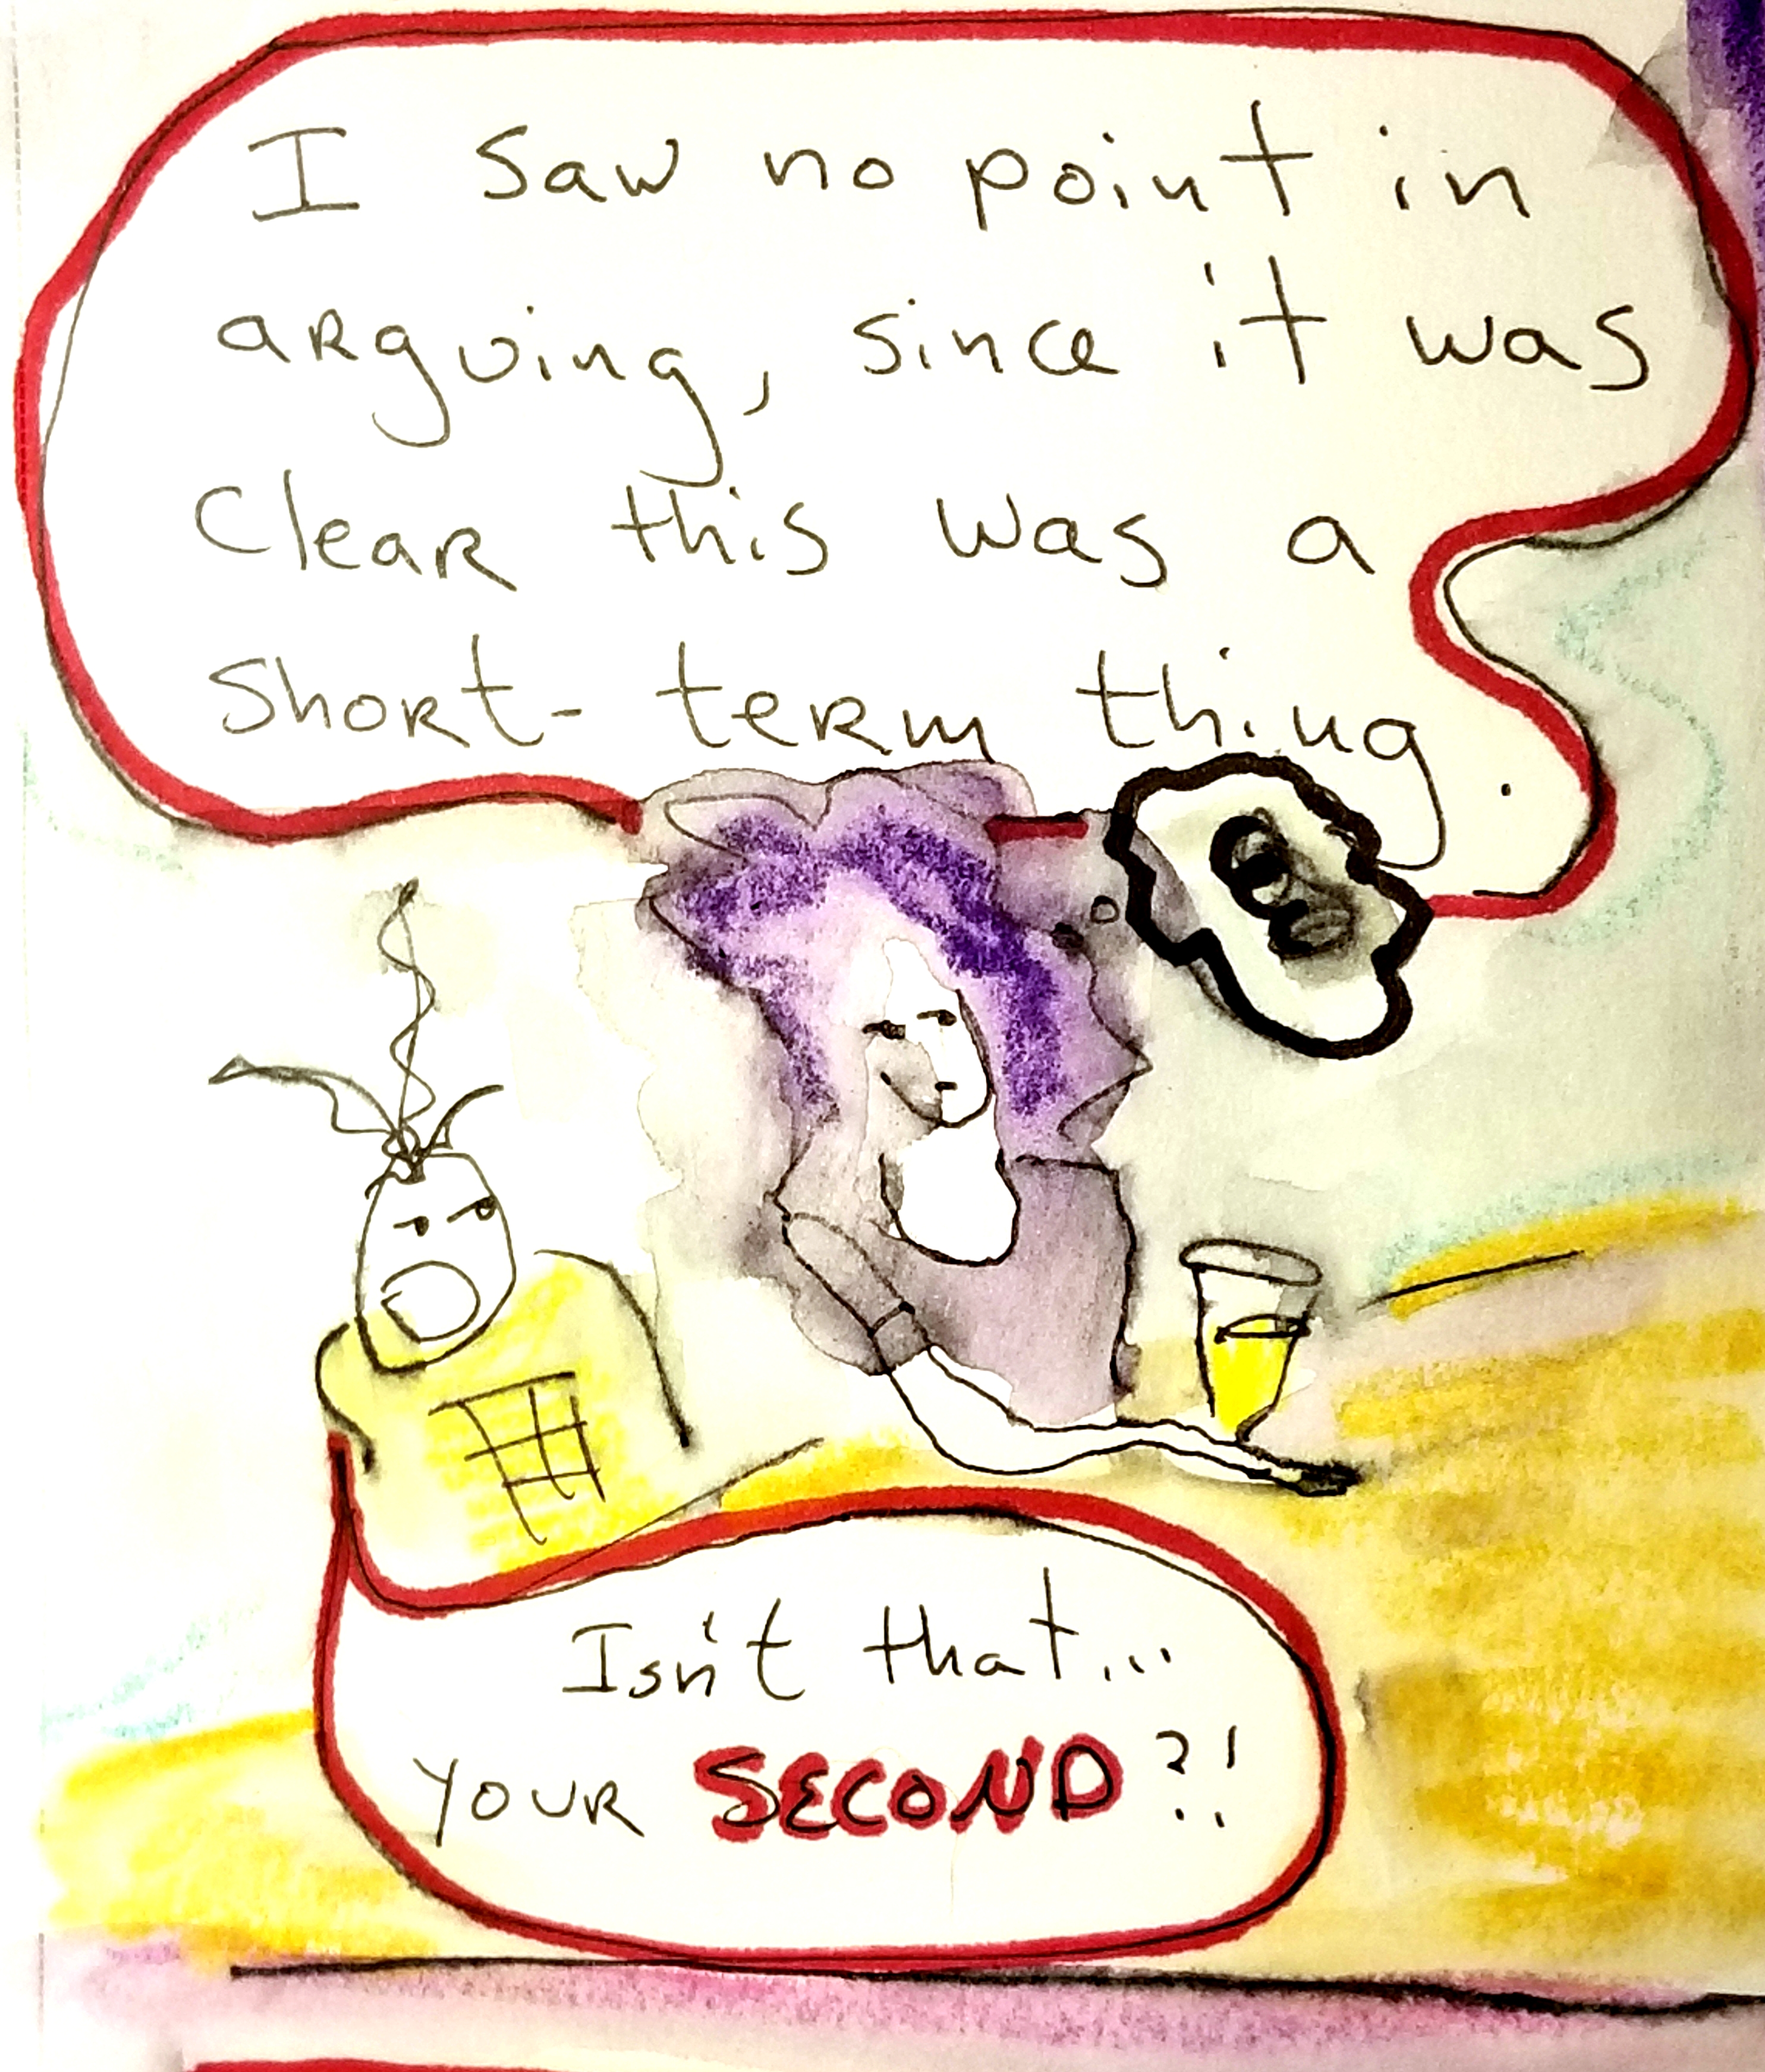 I saw no point in
arguing, since it was
Clear this was a
short-term thing.
Isn't that...
YOUR SECOND?!